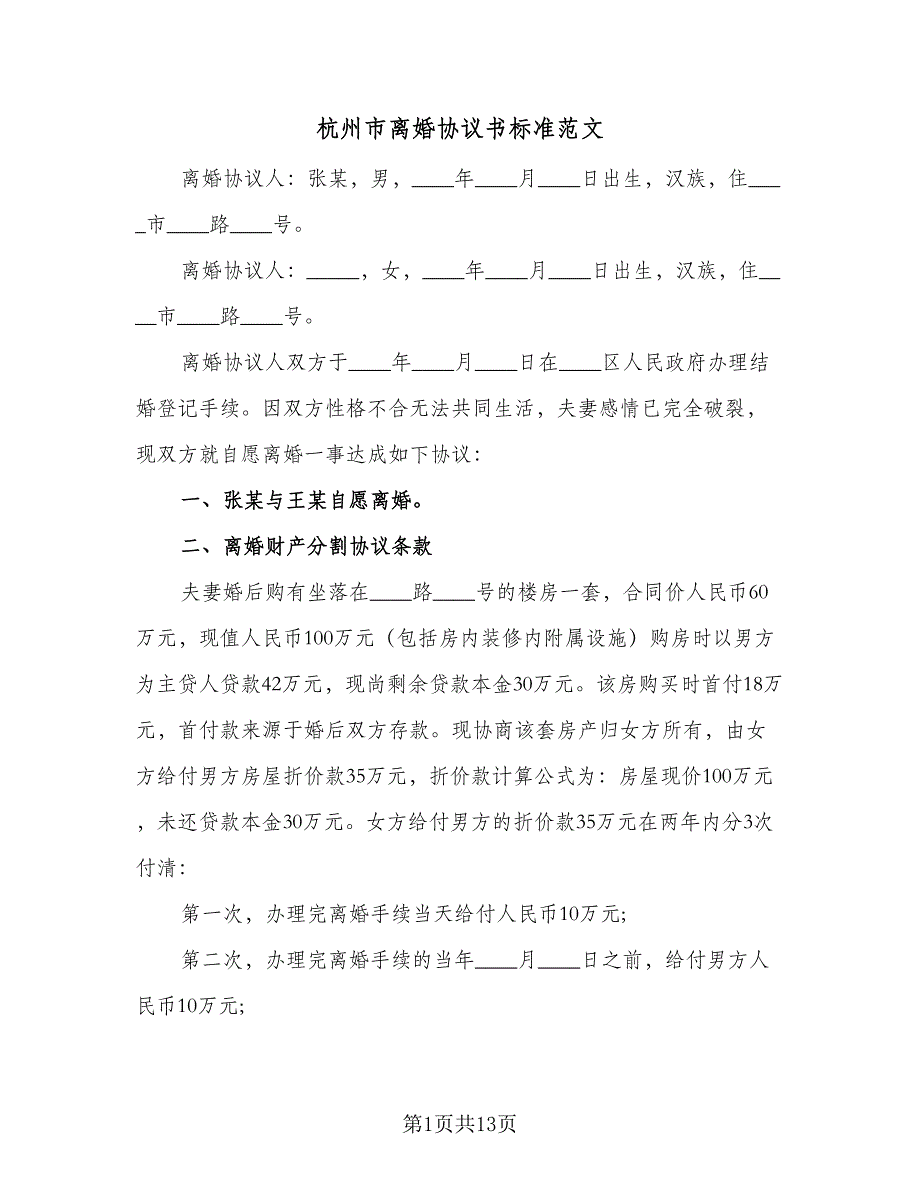 杭州市离婚协议书标准范文
离婚协议人：张某，男，____年____月____日出生，汉族，住___
_市____路____号。
离婚协议人：_____，女，____年____月____日出生，汉族，住__
__市____路____号。
离婚协议人双方于____年____月____日在____区人民政府办理结
婚登记手续。因双方性格不合无法共同生活，夫妻感情已完全破裂，
现双方就自愿离婚一事达成如下协议：
一、张某与王某自愿离婚。
二、离婚财产分割协议条款
夫妻婚后购有坐落在____路____号的楼房一套，合同价人民币60
万元，现值人民币100万元（包括房内装修内附属设施）购房时以男方
为主贷人贷款42万元，现尚剩余贷款本金30万元。该房购买时首付18万
元，首付款来源于婚后双方存款。现协商该套房产归女方所有，由女
方给付男方房屋折价款35万元，折价款计算公式为：房屋现价100万元
，未还贷款本金30万元。女方给付男方的折价款35万元在两年内分3次
付清：
第一次，办理完离婚手续当天给付人民币10万元;
第二次，办理完离婚手续的当年____月____日之前，给付男方人
民币10万元;
第1页共13页